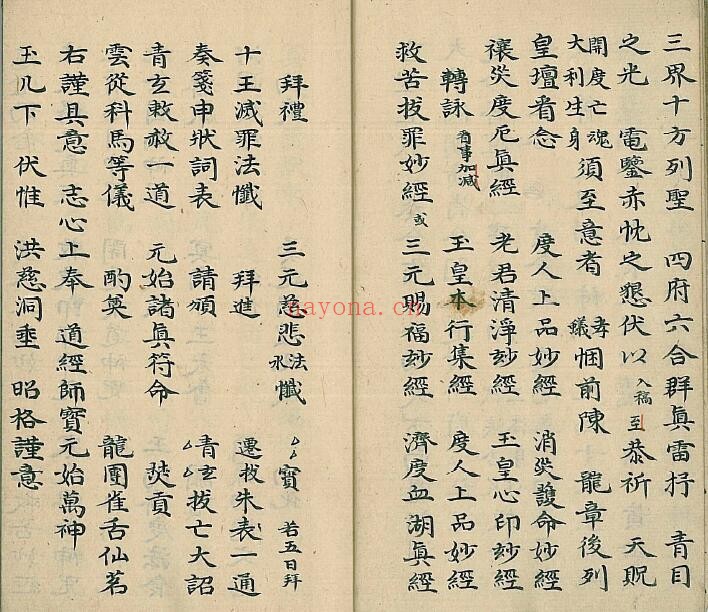 三界十方列聖 四府六合群真雷抒 青目
之光 電鑒赤忱之懇伏以 入稿 至 恭祈 天貺
開度亡魂 大利生身 須至意者 孝 蟻 悃前陳 龍章後列
皇壇看念 度人上品妙經 消災護命妙經
禳災度厄真經 老君清淨妙經 玉皇心印妙經
轉詠 看事加減 玉皇本行集經 度人上品妙經
救苦拔罪妙經 或 三元賜福妙經 濟度血湖真經
拜禮 三元慈悲 法 水 懺 寶 若五日拜
十王滅罪法懺 拜進 遷拔朱表一通
奏箋申狀詞表 請頒 青玄拔亡大詔
青玄敕赦一道 元始諸真符命 焚貢
雲從科馬等儀 酌奠 龍團雀舌仙茗
右謹具意 志心上奉 道經師寶元始萬神
玉几下伏惟 洪慈洞垂 昭格謹意
nayona.cn